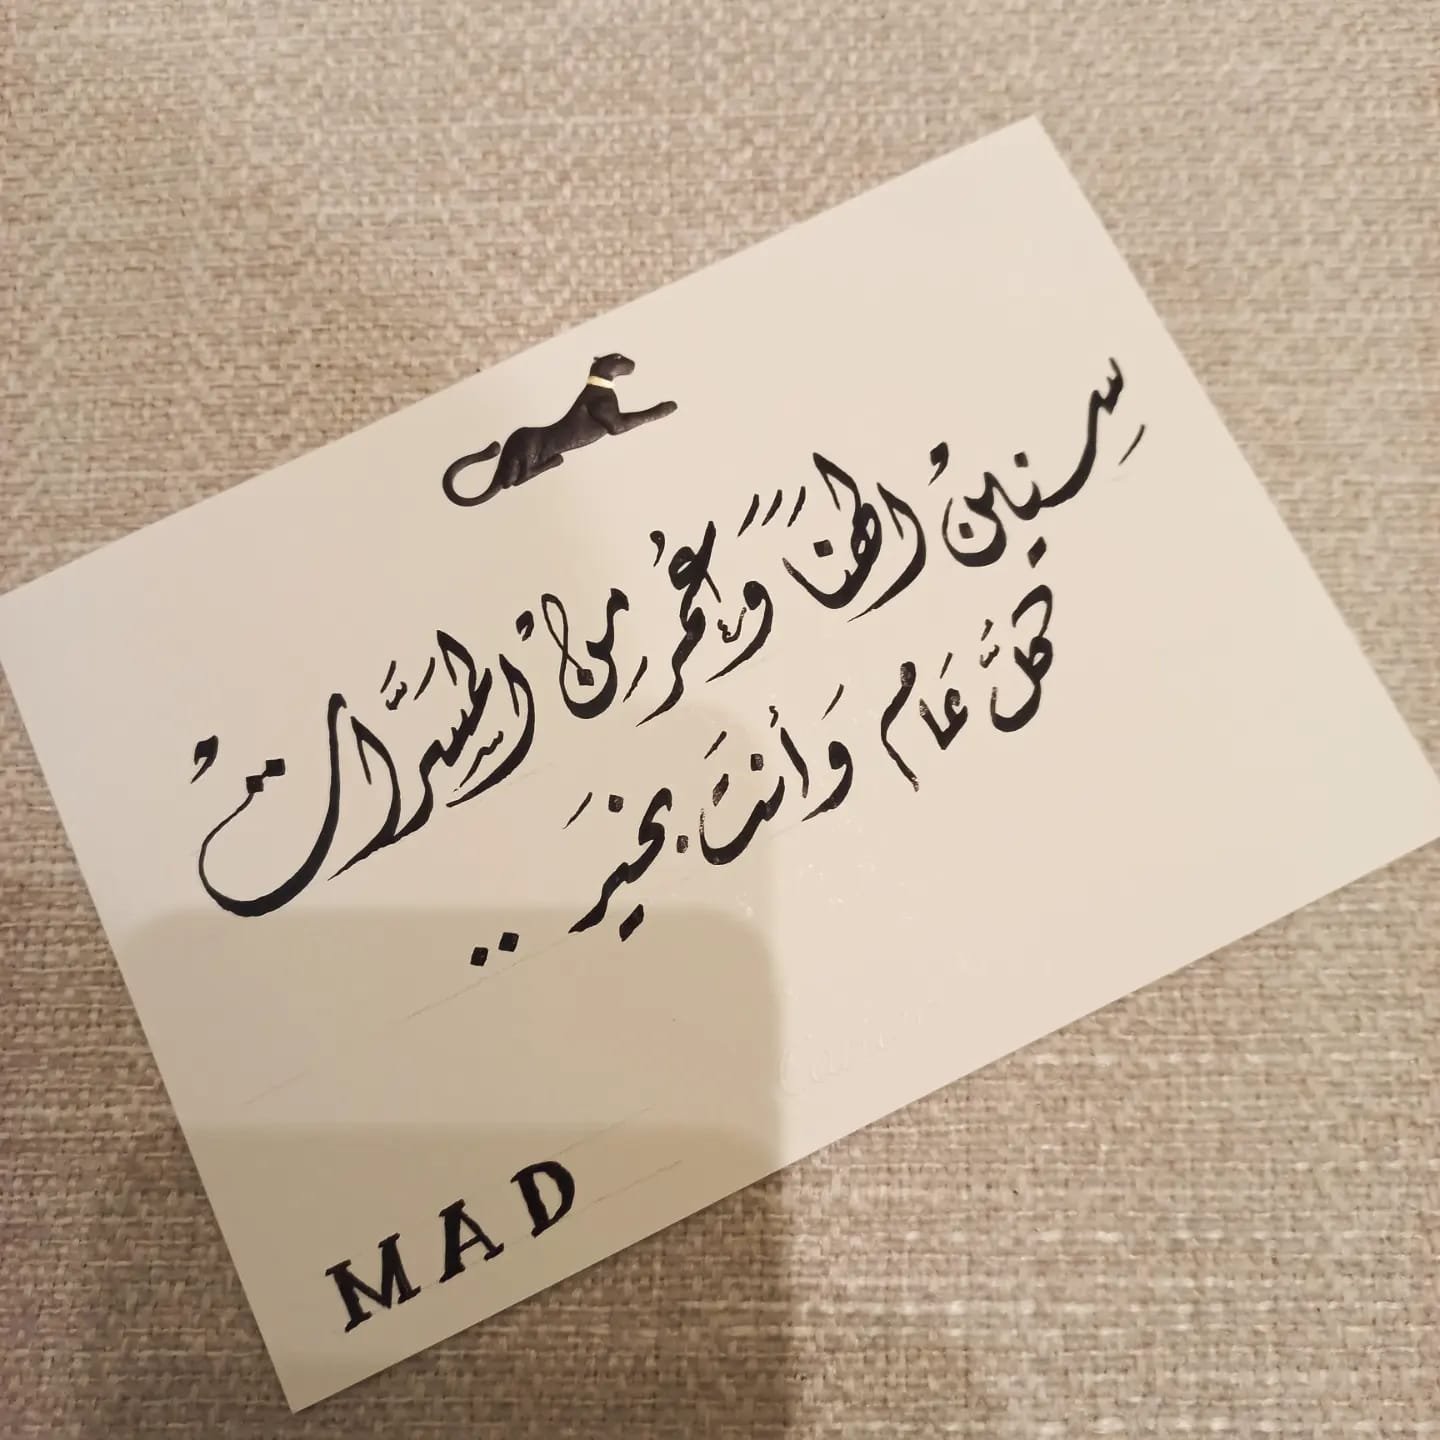 سِنينْ الهنَا وَعُمرِ مِنْ المسَرَّاتْ
كلَّ عَام وَأنتَ بخيَر ..
MAD